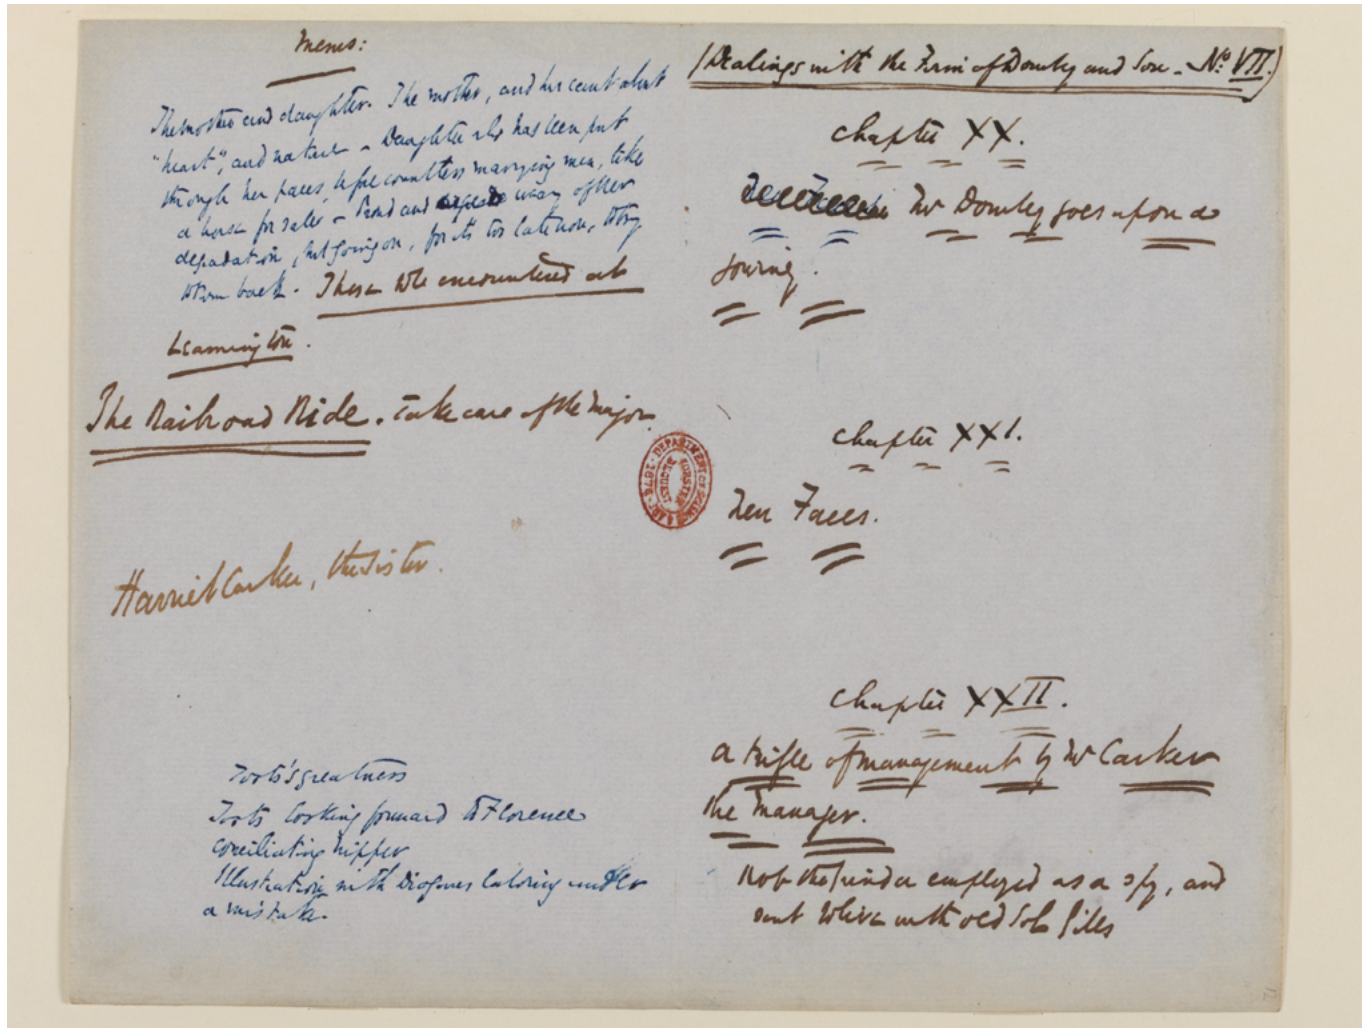 Mems:
The mother and daughter. The mother, and her cant about
"heart", and nature - Daughter who has been put
through her paces, before countless marrying men, like
a horse for sale - Proud and weary of her
degradation, but going on, for it's too late now, to try
to turn back. - These to be encountered at
Leamington.
The Railroad Ride. Take care of the Major.
Harriet Carker, the sister.
Toots's greatness
Toots looking forward to Florence
conciliating Nipper
Illustration with Diogenes laboring under
a mistake.
(Dealings with the Firm of Dombey and Son - No. VII.)
Chapter XX.
Mr Dombey goes upon a
journey.
Chapter XXI.
New Faces.
Chapter XXII.
A trifle of management by Mr Carker
the Manager.
Rob the Grinder employed as a spy, and
sent to live with old Sol Gills
DEPARTMENT OF SCIENCE & ART
FORSTER
BEQUEST